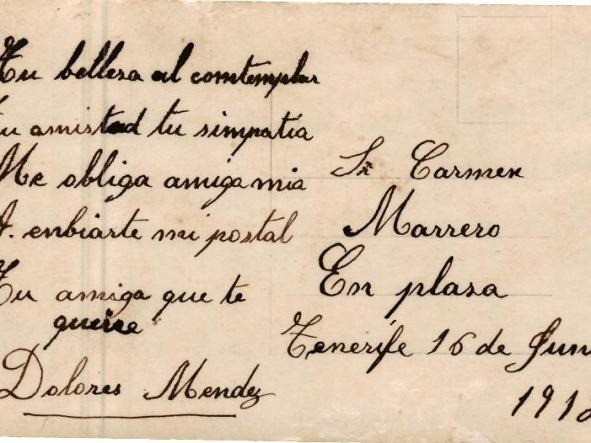 Tu bellesa al comtemplar
Tu amistad tu simpatia
Me obliga amiga mia
A. enbiarte mi postal
Tu amiga que te
queire
Dolores Mendez
Sr. Carmen
Marrero
En plasa
Tenerife 16 de Juni